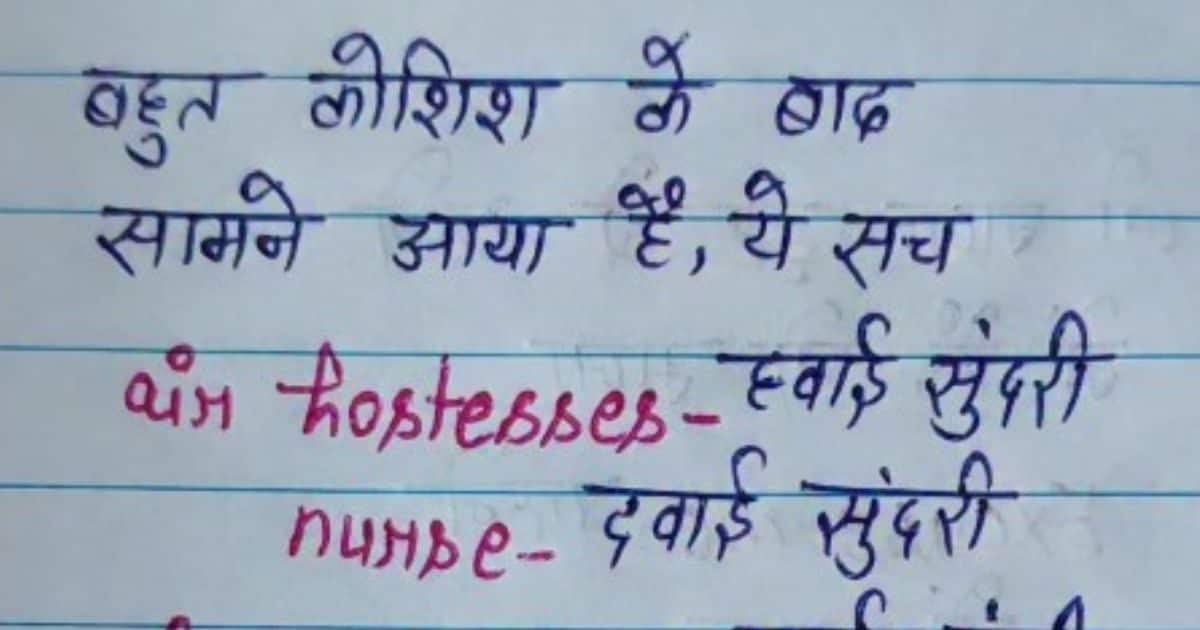 बहुत कोशिश के बाद
सामने आया है, ये सच
air hostesses- हवाई सुंदरी
nurse- दवाई सुंदरी